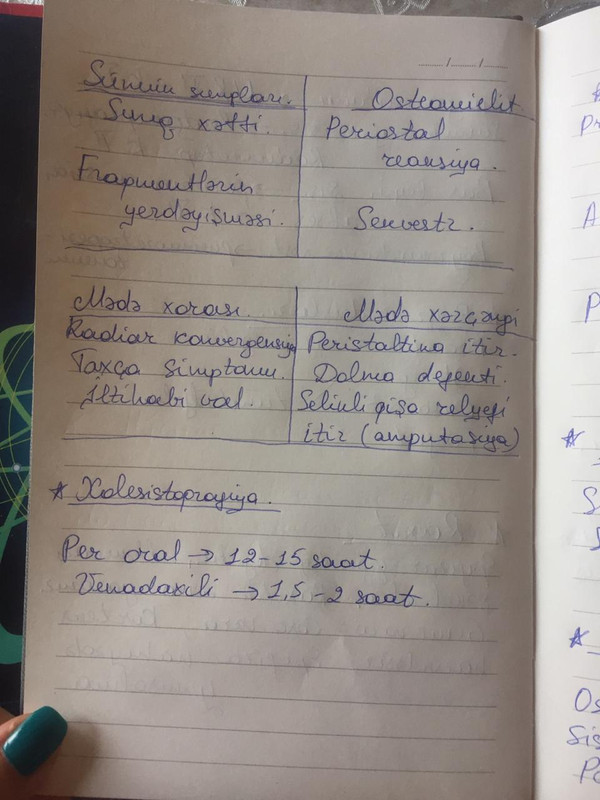 Sümük sınıqları. Osteomielit
Sınıq xətti. Periostal
reaksiya.
Fraqmentlərin
yerdəyişməsi. Sekvestr.
Mədə xorası. Mədə xərçəngi
Radiar konvergensiya Peristaltika itir.
Taxça simptomu. Dolma defekti.
İltihabi val. Selikli qişa relyefi
itir (amputasiya)
* Xolesistoqrafiya.
Per oral → 12-15 saat.
Venadaxili → 1,5-2 saat.